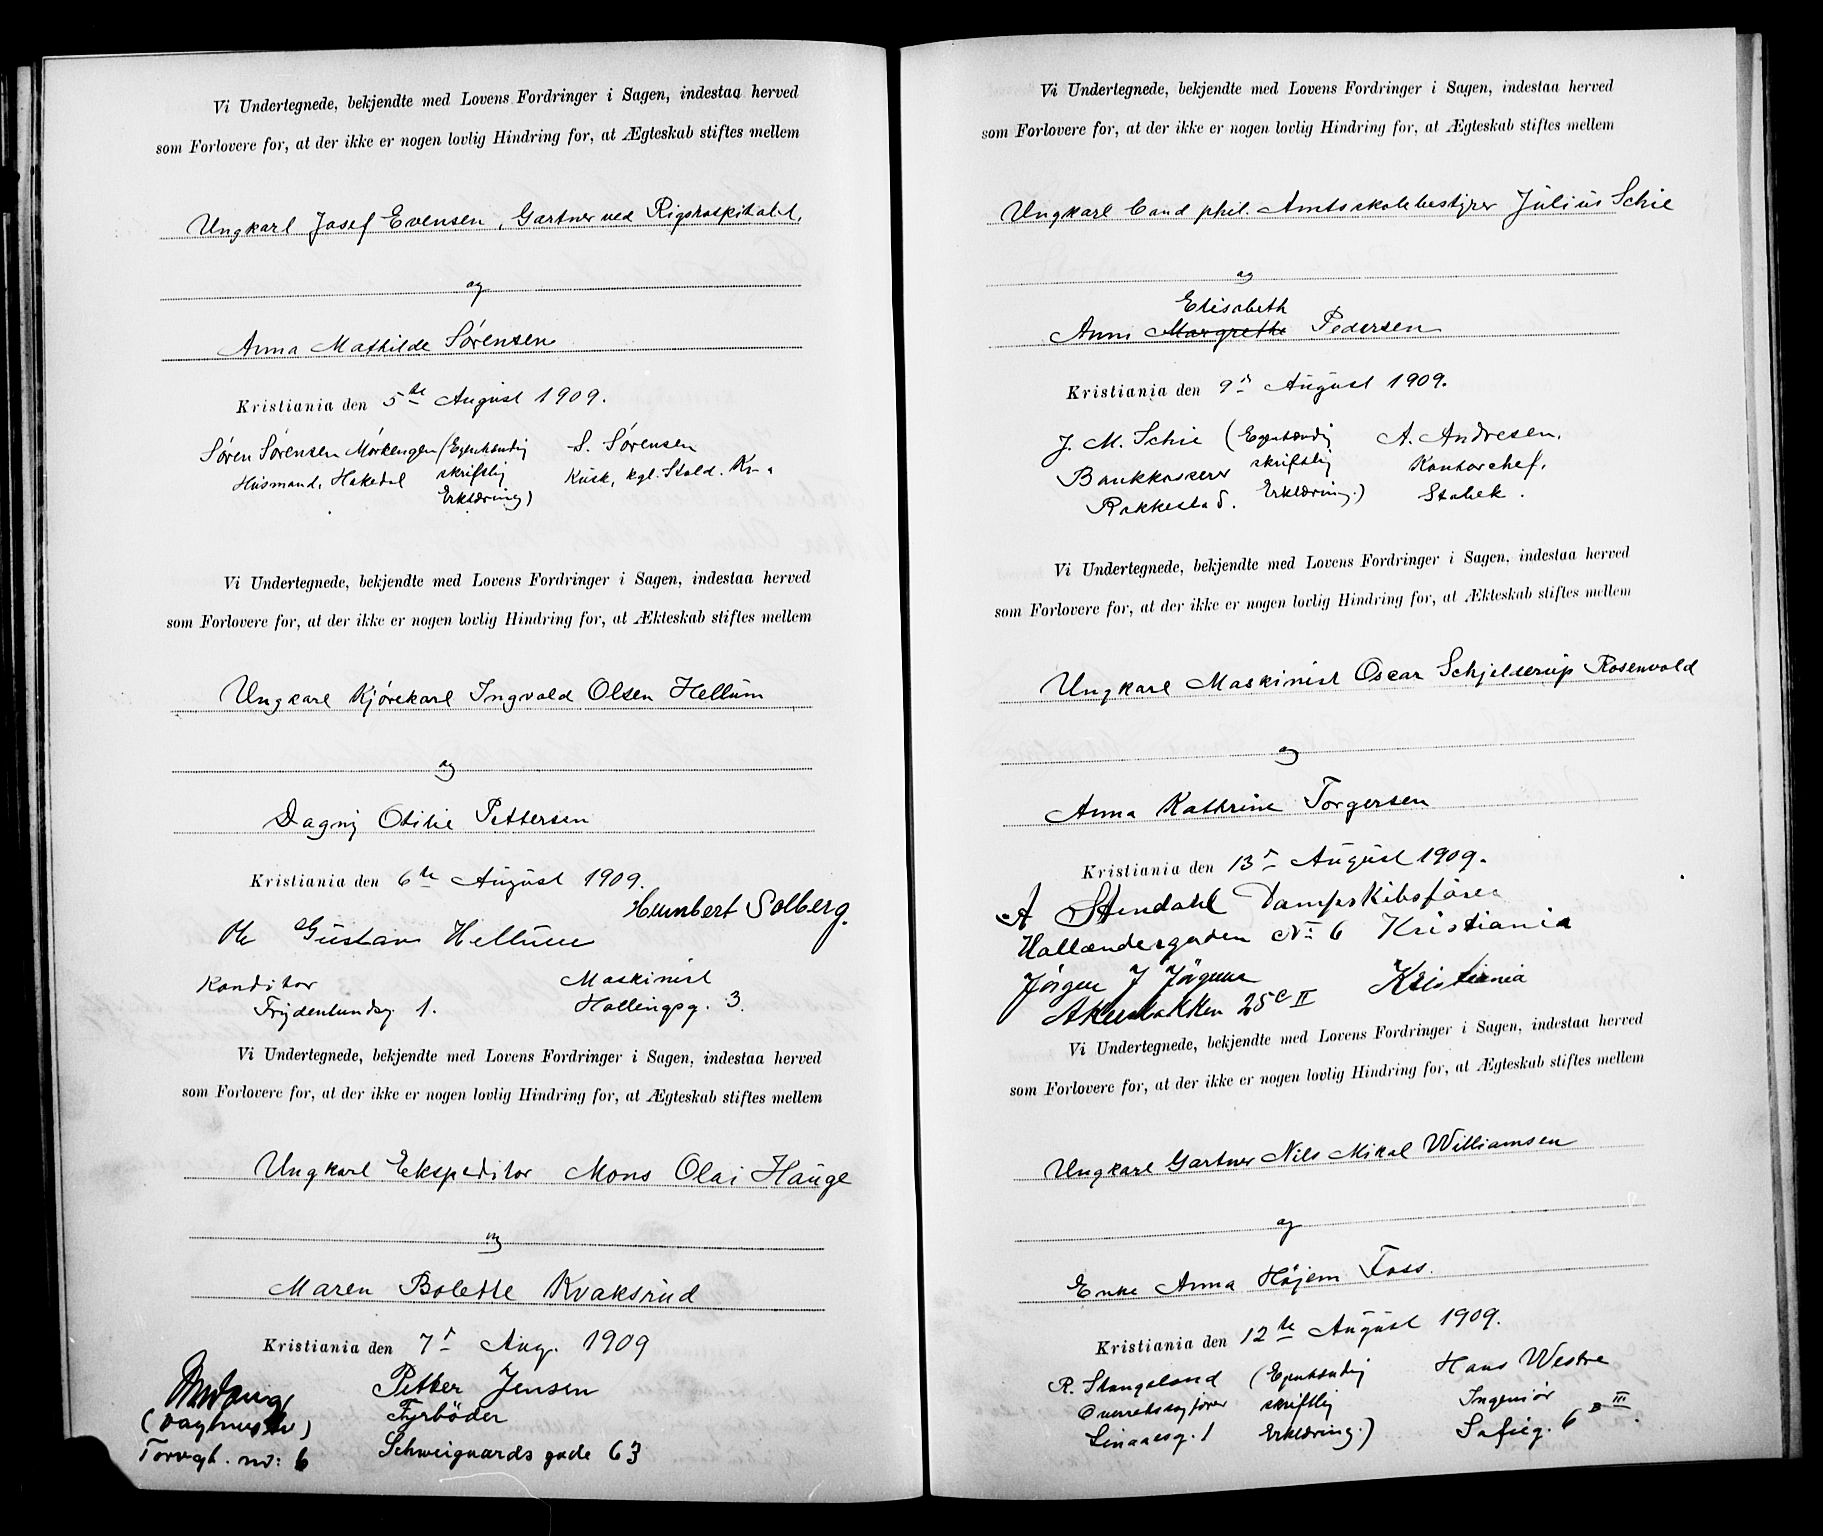 Vi Undertegnede, bekjendte med Lovens Fordringer i Sagen, indestaa herved
som Forlovere for, at der ikke er nogen lovlig Hindring for, at Ægteskab stiftes mellem
Ungkarl Josef Evensen, Gartner ved Rigshospitalet,
og
Anna Mathilde Sørensen
Kristiania den 5te August 1909.
Søren Sørensen Mörkengen (Egenhændig S. Sørensen
Husmand, Hakedal skriftlig Kusk, kgl. Stald. Kr.a
Erklæring)
Vi Undertegnede, bekjendte med Lovens Fordringer i Sagen, indestaa herved
som Forlovere for, at der ikke er nogen lovlig Hindring for, at Ækteskab stiftes mellem
Ungkarl Kjørekarl Ingvald Olsen Hellum
og
Dagny Otilie Pettersen
Kristiania den 6te August 1909.
Humbert Solberg.
Gustav Hellum
Konditor Maskinist
Frydenlundsg. 1. Hallingsg. 3.
Vi Undertegnede, bekjendte med Lovens Fordringer i Sagen, indestaa herved
som Forlovere for, at der ikke er nogen lovlig Hindring for, at Ægteskab stiftes mellem
Ungkarl Ekspeditor Mons Olai Hauge
og
Maren Bolette Kvaksrud
Kristiania den 7d Aug. 1909
Petter Jensen
Fyrbøder
Torvgt. no: 6 Schweigaards gade 63
Vi Undertegnede, bekjendte med Lovens Fordringer i Sagen, indestaa herved
som Forlovere for, at der ikke er nogen lovlig Hindring for, at Ægteskab stiftes mellem
Ungkarl Cand phil. Amtsskolebestyrer Julius Schie
og
Elisabeth
Anna Margrethe Pedersen
Kristiania den 9d August 1909.
J. M. Schie (Egenhændig A. Andresen.
Bankkasserer skriftlig Kontorchef,
Rakkestad. Erklæring.) Stabek.
Vi Undertegnede, bekjendte med Lovens Fordringer i Sagen, indestaa herved
som Forlovere for, at der ikke er nogen lovlig Hindring for, at Ækteskab stiftes mellem
Ungkarl Maskinist Oscar Schjelderup Rosenvold
og
Anna Kathrine Torgersen
Kristiania den 13d August 1909.
A Stendahl Dampskibsfører
Hollændergaden No 6 Kristiania
Jörgen J Kristiania
Akersbakken 25c II
Vi Undertegnede, bekjendte med Lovens Fordringer i Sagen, indestaa herved
som Forlovere for, at der ikke er nogen lovlig Hindring for, at Ægteskab stiftes mellem
Ungkarl Gartner Nils Mikal Williamsen
og
Enke Anna Höjem Foss.
Kristiania den 12te August 1909.
R. Stangeland (Egenhændig Hans Westre
Overretssagfører skriftlig Ingeniør
Linaaesg. 1 Erklæring.) Sofieg. 6 B III.